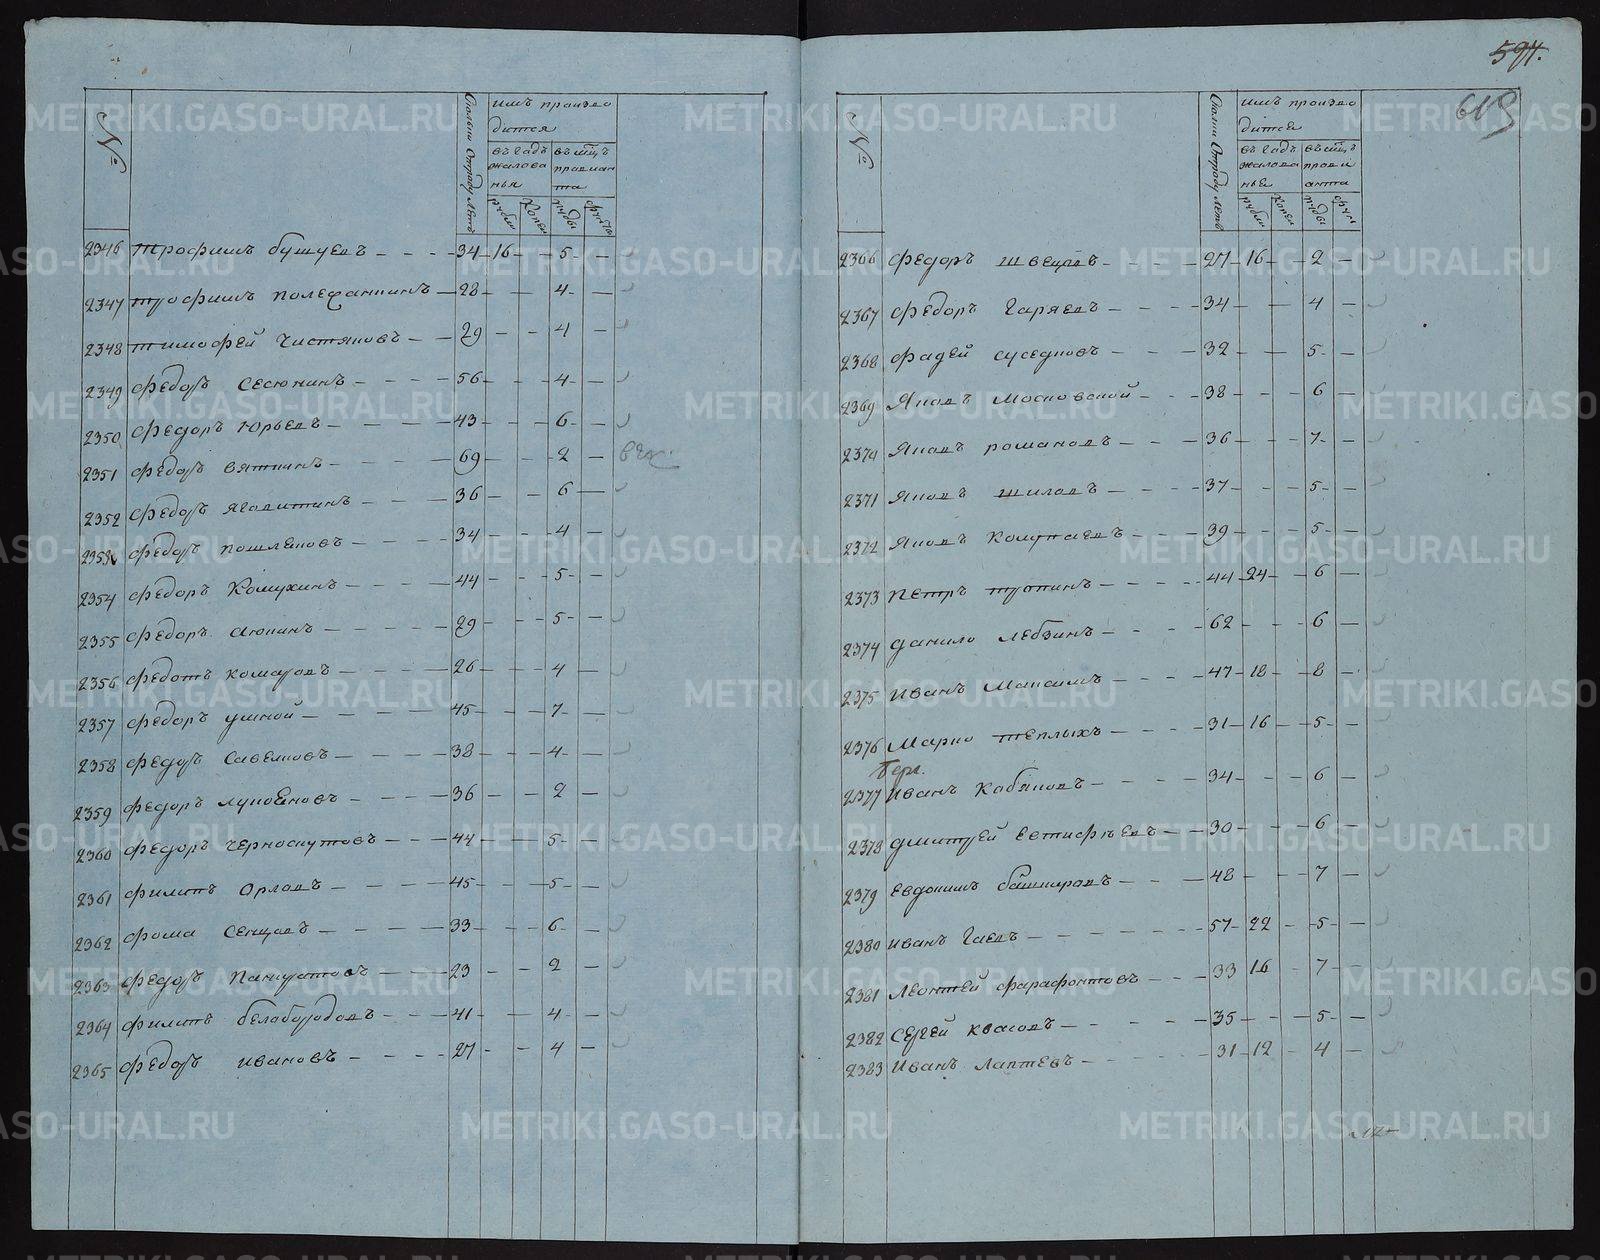 №
имъ произво
дится
въ годъ
жалова
нья
въ мѣсцъ
провиан
та
рубли
Копеи
пуды
фунты
2346 трофимъ бушуевъ 34 16 5
2347 трофимъ полефантинъ 28 4
2348 тимофей Чистяковъ 29 4
2349 Федоръ Сесюнинъ 56 4
2350 Федоръ Юрьевъ 43 6
2351 Федоръ вяткинъ 69 2
2352 Федоръ Ягавитинъ 36 6
2353 Федоръ пошляковъ 34 4
2354 Федоръ Комухинъ 44 5
2355 Федоръ Аюпинъ 29 5
2356 Федотъ комаровъ 26 4
2357 Федоръ умной 45 7
2358 Федоръ Савелковъ 38 4
2359 Федоръ лукояновъ 36 2
2360 Федоръ черноскутовъ 44 5
2361 Филипъ Орловъ 45 5
2362 Фома Сенцовъ 33 6
2363 Федоръ Панкратовъ 23 2
2364 Филипъ белобородовъ 41 4
2365 Федоръ ивановъ 27 4
597.
619
№
имъ произво
дится
въ годъ
жалова
нье
въ мѣсцъ
прови
анта
рубли
Копеи
пуды
фун
2366 Федоръ Швецовъ 27 16 2
2367 Федоръ Гаряевъ 34 4
2368 Фадей суседковъ 32 5
2369 Яковъ Московской 38 6
2370 Яковъ романовъ 36 7
2371 Яковъ Шиловъ 37 5
2372 Яковъ Колупаевъ 39 5
2373 Петръ тупинъ 44 24 6
2374 данило Лебзинъ 62 6
2375 Иванъ Максимъ 47 18 8
2376 Марко теплыхъ 31 16 5
Берг.
2377 Иванъ Кобяковъ 34 6
2378 дмитрей Евтифѣевъ 30 6
2379 Евдокимъ башкировъ 48 7
2380 иванъ Гаевъ 57 22 5
2381 Леонтей фарафонтовъ 33 16 7
2382 Сергей квасовъ 35 5
2383 Иванъ Лаптевъ 31 12 4